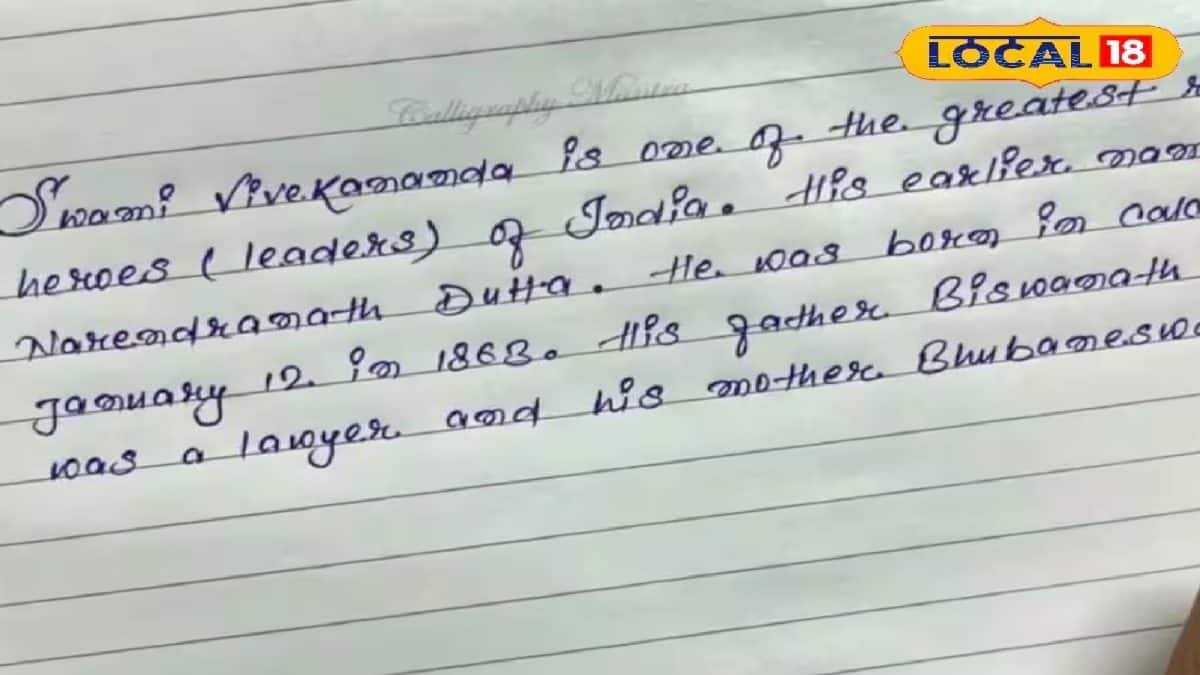 LOCAL 18
Calligraphy Mantra
Swami Vivekananda is one of the greatest
heroes (leaders) of India. His earlier nam
Narendranath Dutta. He was born in Calc
January 12 in 1863. His father Biswanath
was a lawyer and his mother Bhubaneswa